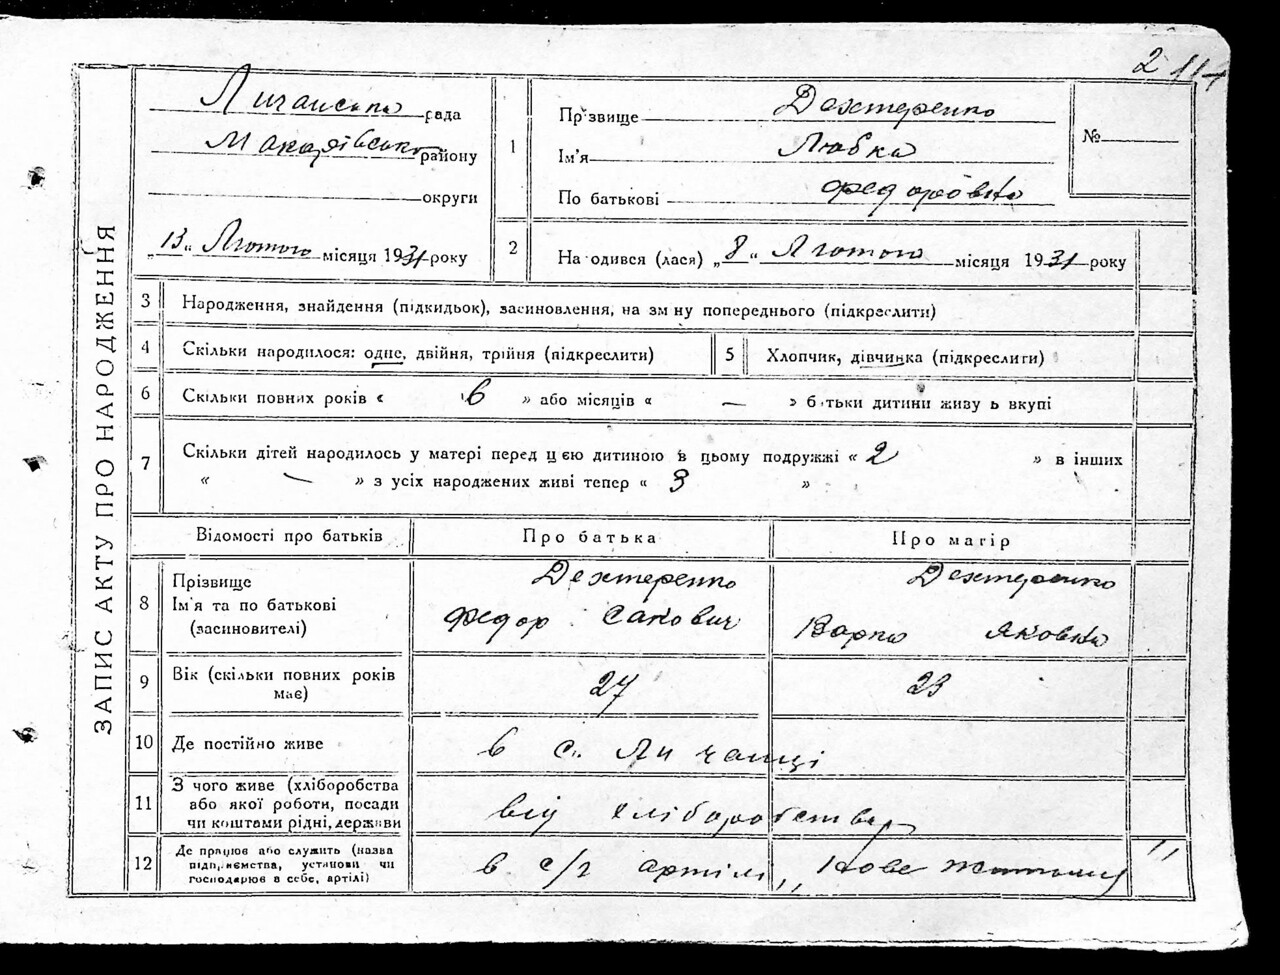 2 11
Личанська рада
Макарівського району
округи
„13“ Лютого місяця 1931 року
ЗАПИС АКТУ ПРО НАРОДЖЕННЯ
1 Прізвище Дехтеренко
Ім'я Любка
По батькові Федоровна
№
2 Народився (лася) „8“ Лютого місяця 1931 року
3 Народження, знайдення (підкидьок), засиновлення, на зміну попереднього (підкреслити)
4 Скільки народилося: одне, двійня, трійня (підкреслити)
5 Хлопчик, дівчинка (підкреслити)
6 Скільки повних років « 6 » або місяців « — » батьки дитини живуть вкупі
7 Скільки дітей народилось у матері перед цією дитиною в цьому подружжі « 2 » в інших
« — » з усіх народжених живі тепер « 3 »
Відомості про батьків Про батька Про матір
8 Прізвище Дехтеренко Дехтеренко
Ім'я та по батькові Федор Сакович Варка Яковна
(засиновителі)
9 Вік (скільки повних років має) 27 23
10 Де постійно живе в с. Личанці
11 З чого живе (хліборобства
або якої роботи, посади
чи коштами рідні, держави від хліборобства
12 Де працює або служить (назва
підприємства, установи чи
господарює в себе, артілі) в с/г артілі „Нове Життя“